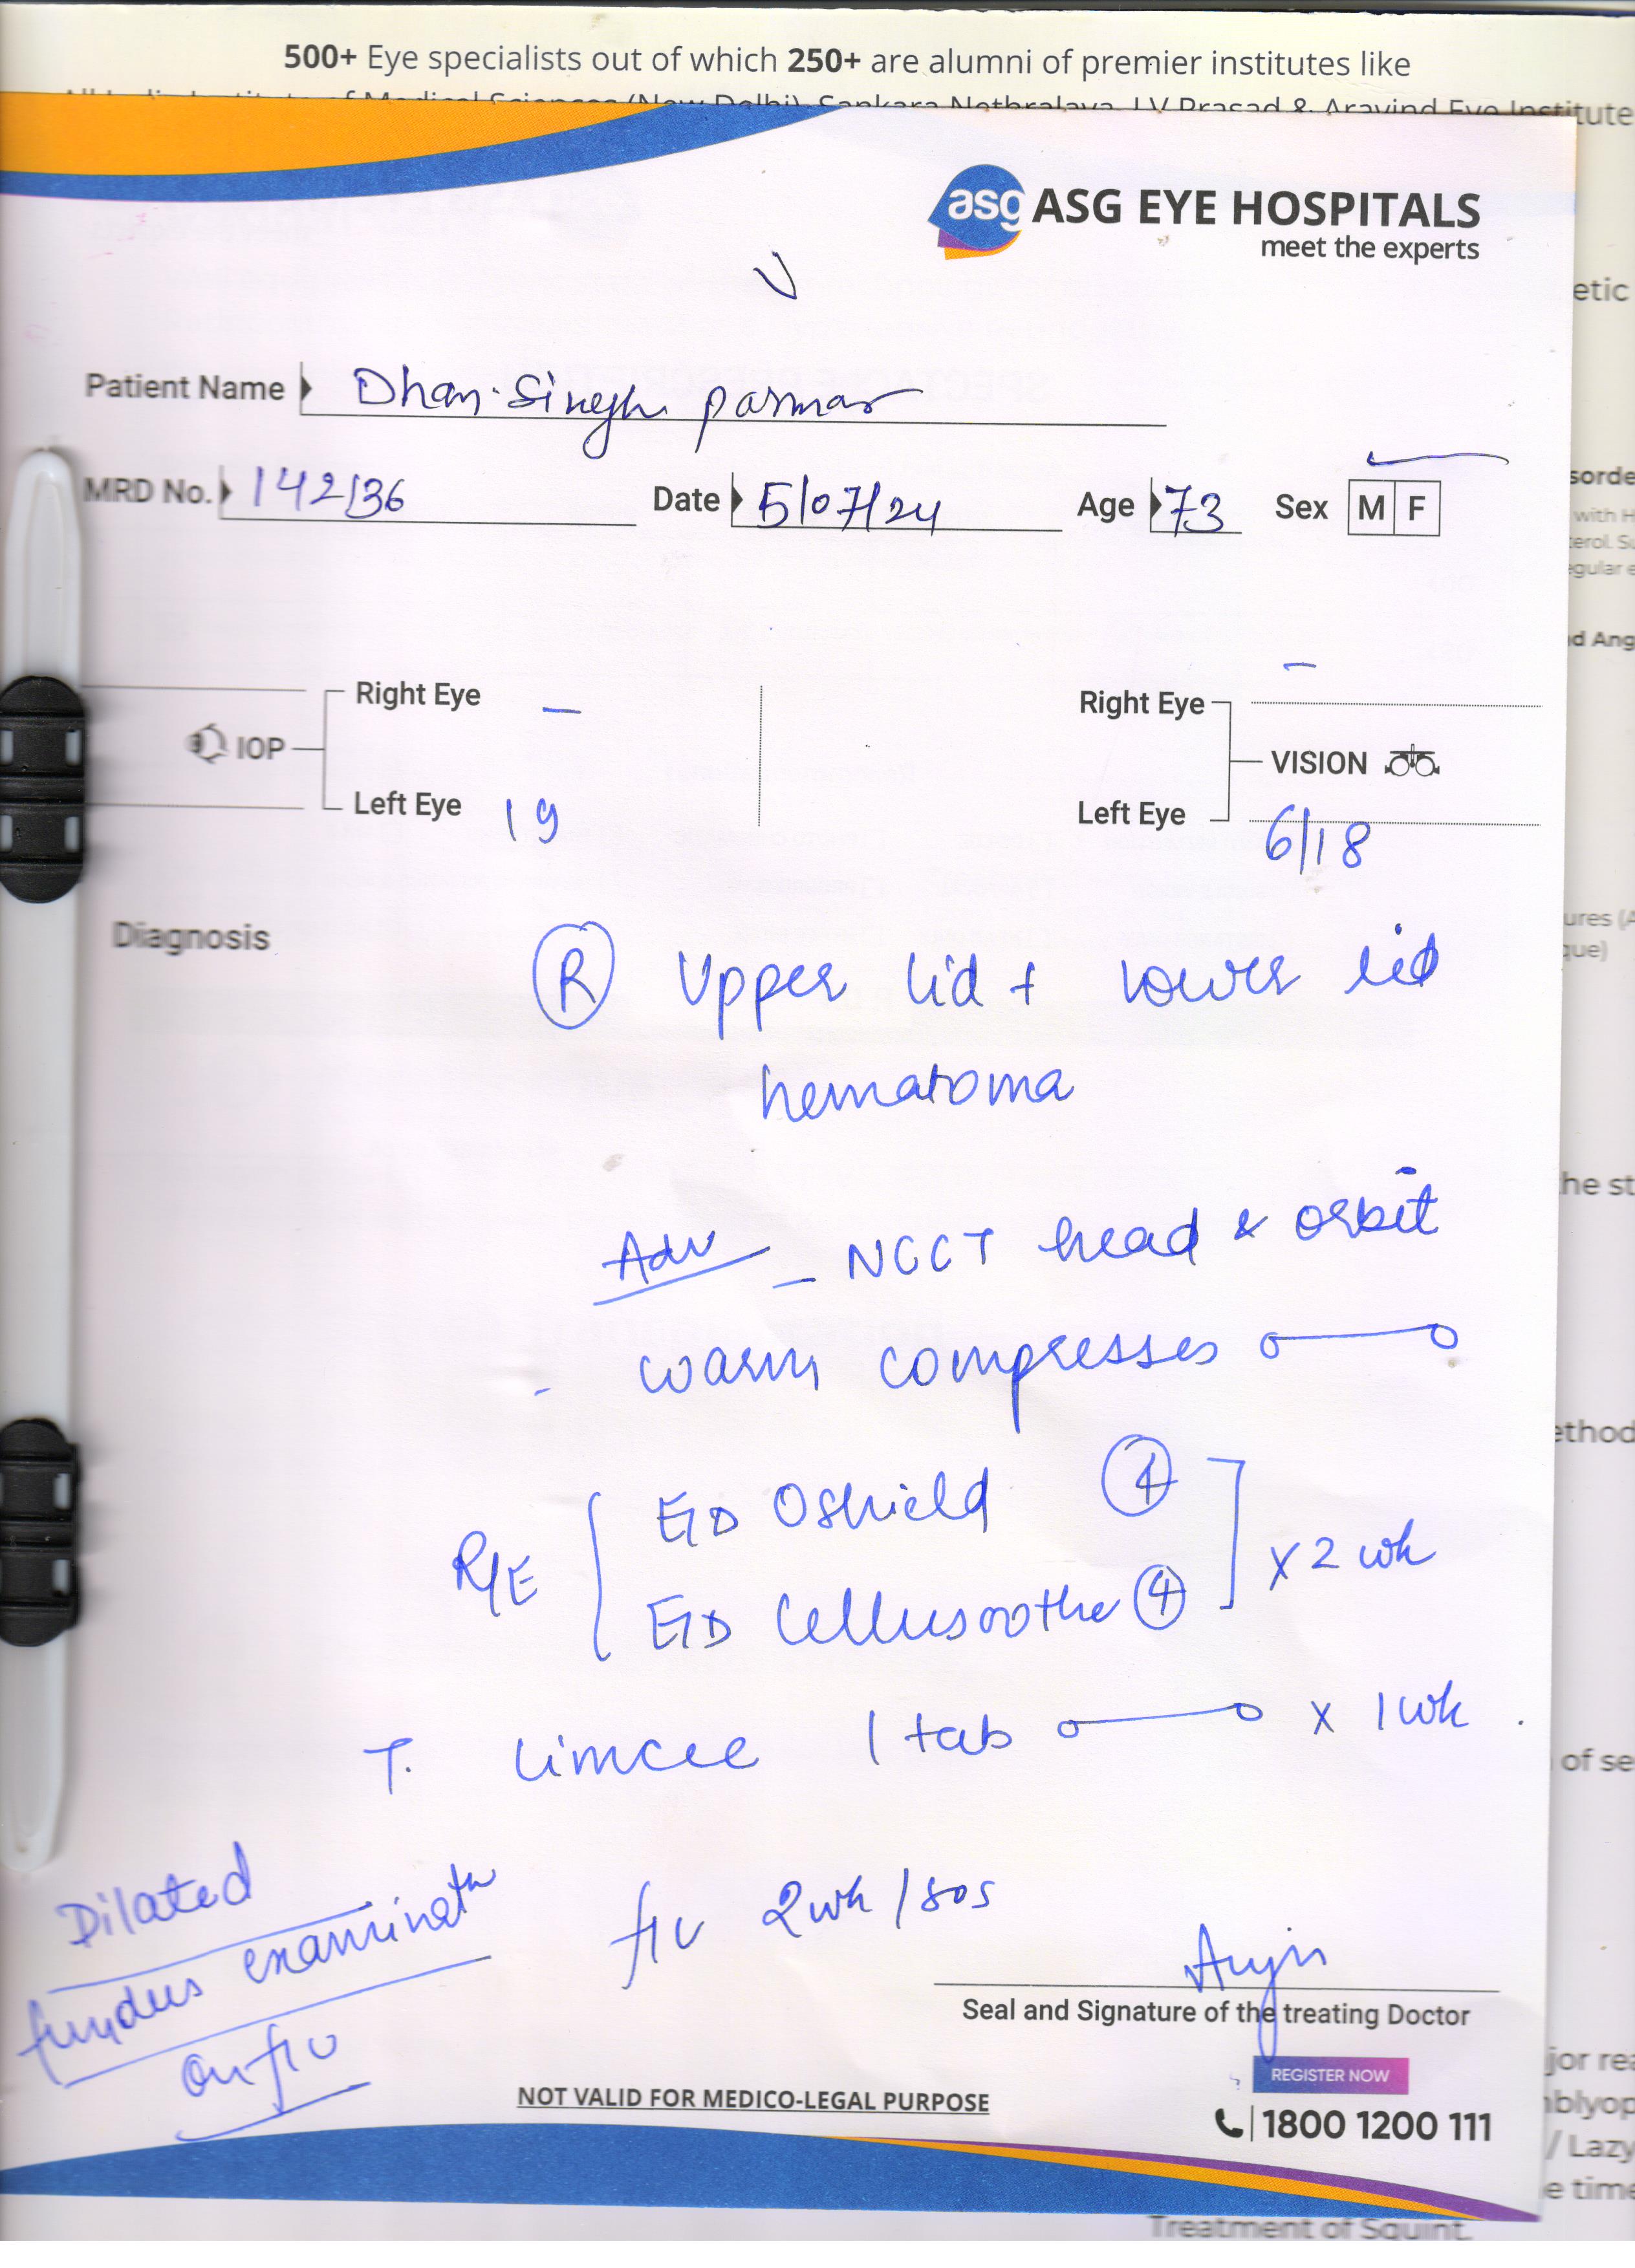 500+ Eye specialists out of which 250+ are alumni of premier institutes like
All India Institute of Medical Sciences (New Delhi), Sankara Nethralaya, LV Prasad & Aravind Eye Institute
asg ASG EYE HOSPITALS
meet the experts
Patient Name Dhan Singh Parmar
MRD No. 142136 Date 5/07/24 Age 73 Sex M F
Right Eye –
IOP
Left Eye 19
Right Eye –
VISION
Left Eye 6/18
Diagnosis
(R) Upper lid + lower lid
hematoma
Adv – NCCT head & orbit
- warm compresses o—o
R/E { E/D Oshield (4)
E/D Cellusoothe (4) ] x 2 wk
T. limcee 1 tab o—o x 1 wk
f/u 2wk / sos
Dilated
fundus examinatn
on f/u
Seal and Signature of the treating Doctor
REGISTER NOW
NOT VALID FOR MEDICO-LEGAL PURPOSE
1800 1200 111
etic
with H
egular e
d Ang
ures (A
que)
he st
ethod
of se
jor rea
/ Lazy
e time
Treatment of Squint.